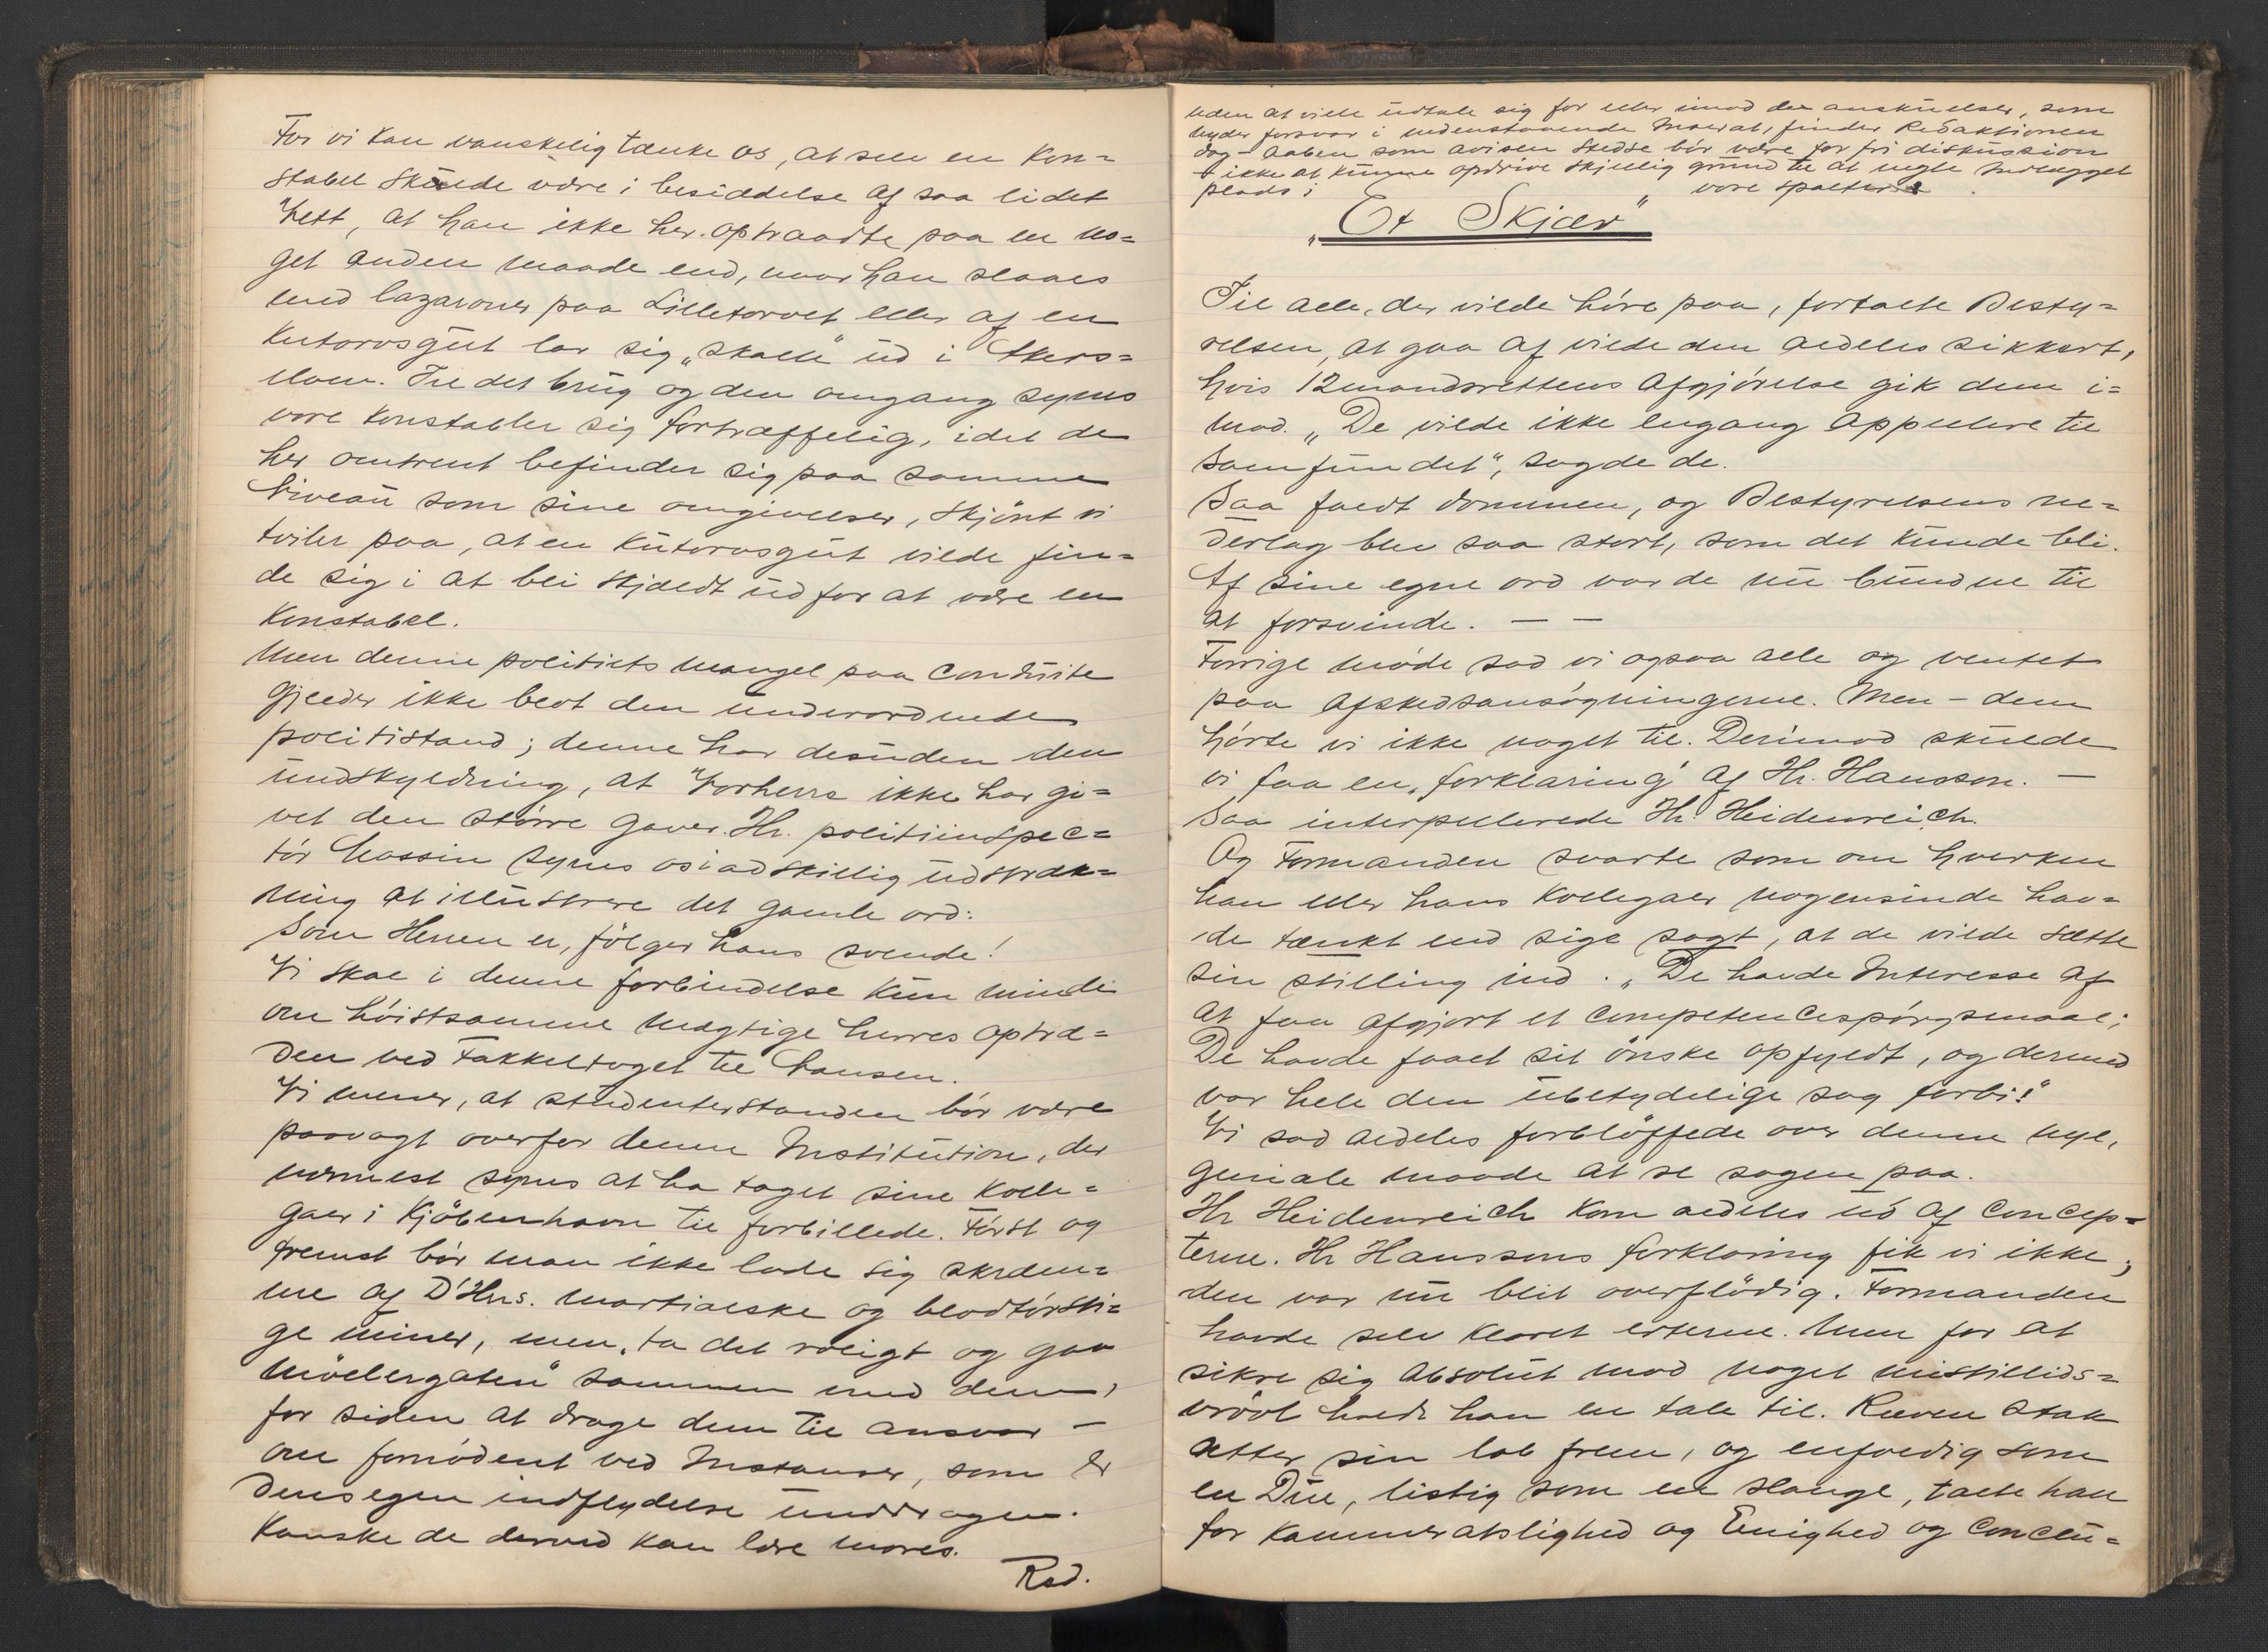 For vi kan vanskelig tænke os, at selv en Kon=
stabel skulde være i besiddelse af saa lidet
Vett, at han ikke her optraadte paa en no=
get anden maade end, naar han slaaes
med lazaroner paa Lilletorvet eller af en
Kutorvsgut lar sig „skalle" ud i Akers=
elven. Til det brug og den omgang synes
vore konstabler sig fortræffelig, idet de
her omtrent befinder sig paa samme
Niveau som sine omgivelser, skjönt vi
tviler paa, at en Kutorvsgut vilde fin=
de sig i at bli skjældt ud for at være en
Konstabel.
Men denne politiets mangel paa Conduite
gjælder ikke blot den underordnede
politistand; denne har desuden den
undskyldning, at Vorherre ikke har gi=
vet den större gaver. Hr. politiinspec=
tör Nossin synes os i adskillig udstræk=
ning at illustrere det gamle ord:
Som Herren er, fölger hans svende!
Vi skal i denne forbindelse kun minde
om höistsamme mægtige herres optræ=
den ved Fakkeltoget til Nansen.
Vi mener, at studenterstanden bör være
paavagt overfor denne Institution, der
nærmest synes at ha taget sine Kolle=
gaer i Kjöbenhavn til forbillede. Först og
fremst bör man ikke lade sig skræm=
me af D'Hrs. martialske og blodtörsti=
ge miner, men „ta det roligt og gaa
Möllergaten" sammen med dem,
for siden at drage dem til ansvar —
om fornödent ved Instanser, som er
Dens egen indflydelse unddragen.
Kanske de derved kan lære mores.
Red.
Uden at ville udtale sig for eller imod de anskuelser, som
nyder forsvar i nedenstaaende Inserat, finder Redaktionen
dog – aaben som avisen stedse bör være for fri diskussion
– ikke at kunne opdrive skjellig grund til at negte Indlægget
plads i vore spalter.
„Et Skjær"
Til alle, der vilde höre paa, fortalte Besty=
relsen, at gaa af vilde den aldeles sikkert,
hvis 12mandsrettens Afgjörelse gik dem i=
mod. „De vilde ikke engang appellere til
Samfundet", sagde de.
Saa faldt dommen, og Bestyrelsens ne=
derlag blev saa stort, som det kunde bli.
Af sine egne ord var de nu bundne til
at forsvinde. — —
Forrige möde sad vi ogsaa alle og ventet
paa Afskedsansögningerne. Men – dem
hörte vi ikke noget til. Derimod skulde
vi faa en „forklaring" af Hr. Hansson. —
Saa interpellerede Hr. Heidenreich.
Og Formanden svarte som om hverken
han eller hans Kollegaer nogensinde hav=
de tænkt end sige sagt, at de vilde sætte
sin stilling ind. „De havde Interesse af
at faa afgjort et Competencespörgsmaal;
De havde faaet sit önske opfyldt, og dermed
var hele den ubetydelige sag forbi!"
Vi sad aldeles forblöffede over denne nye,
geniale maade at se sagen paa.
Hr Heidenreich kom aldeles ud af Concep=
terne. Hr Hanssons forklaring fik vi ikke;
den var nu blit overflödig. Formanden
havde selv klaret erterne. Men for at
sikre sig absolut mod noget mistillids=
vrövl holdt han en tale til. Ræven stak
atter sin lab frem, og enfoldig som
en Due, listig som en slange, talte han
for Kammeratslighed og Enighed og Conclu=